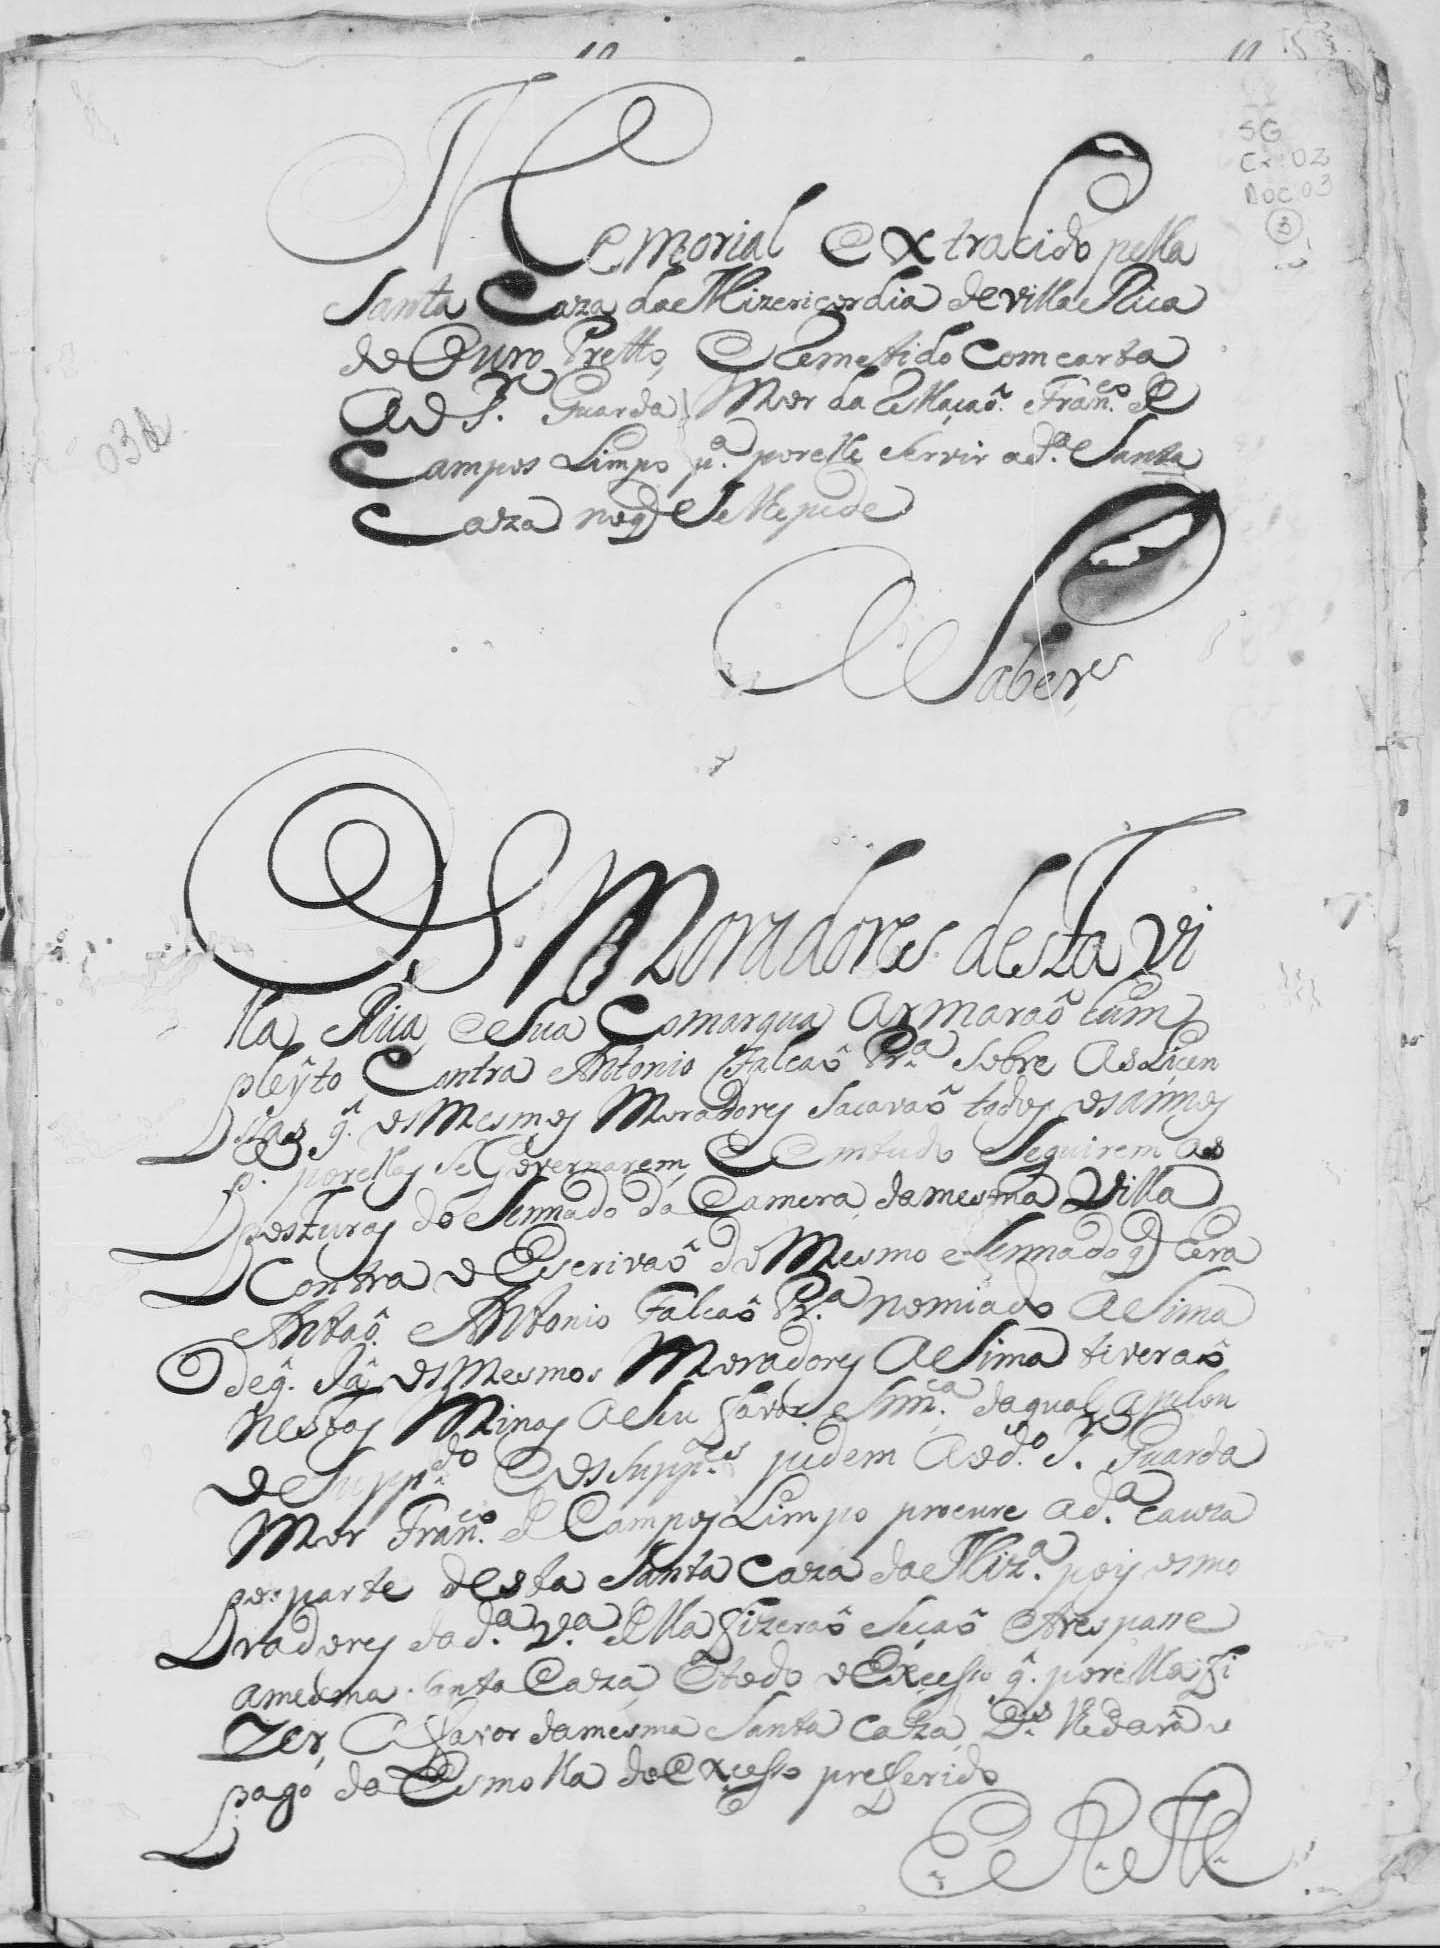 SG
Cx: 02
Doc 03
3
Memorial extrahido pella
Santa Caza da Mizericordia de Villa Rica
de Ouro Pretto, e Remetido Com carta
Ao Sr. Guarda Mor da Rellaçaõ. Franco. de
Campos Limpo pa. por elle Servir a da. Santa
Caza no q Se lhe pede
A Saber
Os Moradores desta Vi
lla Rica e Sua Comarqua Armaraõ hum
pleyto Contra Antonio Falcaõ Pra. Sobre As Licen
sias q. os Mesmos Moradores Sacavaõ todos os annos
p. por ellas Se Governarem, e Em tudo Seguirem as
posturas do Sennado da Camera da mesma Villa
Contra o Escrivaõ do Mesmo Sennado q Era
Antaõ. Antonio Falcaõ Pra. nomiado ASima
de q. Já os Mesmos Moradores ASima tiveraõ
nestas Minas A Seu favor Snnca. da qual Apelou
o Suppdo. e os Supptes. pedem Ao do. Sr. Guarda
Mor Franco. de Campos Limpo procure a da. Cauza
por parte desta Santa Caza da Miza. pois os mo
radores da da. Va. della fizeraõ Seçaõ e trespasse
a mesma Santa Caza, e todo o Excesso q. por ella fi
Zer, A favor da mesma Santa Caza, Ds. lhe dará o
pago da Esmolla do Excesso prefferido
E. R. M.